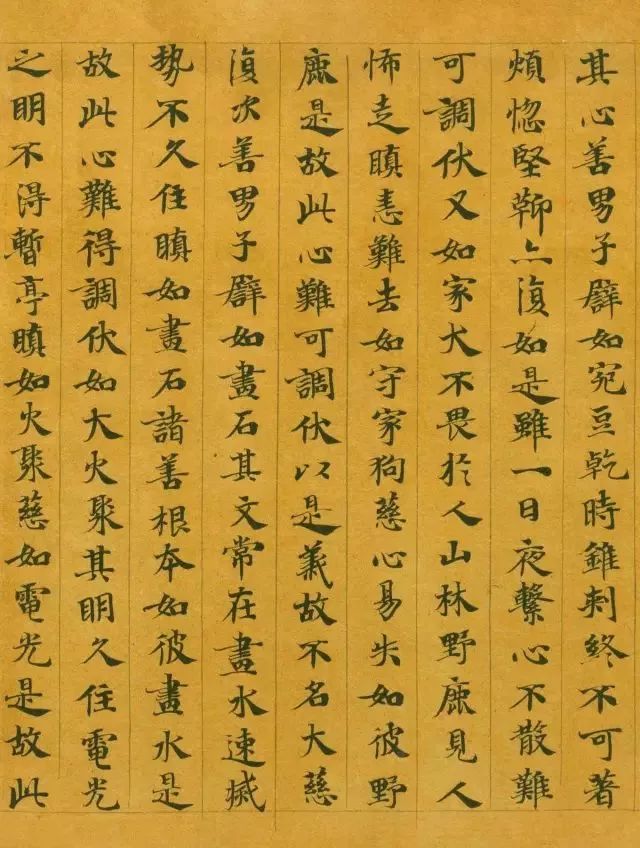 其心善男子譬如宛豆乾時錐刺終不可著
煩惱堅鞕亦復如是雖一日夜繫心不散難
可調伏又如家犬不畏於人山林野鹿見人
怖走瞋恚難去如守家狗慈心易失如彼野
鹿是故此心難可調伏以是義故不名大慈
復次善男子譬如畫石其文常在畫水速滅
勢不久住瞋如畫石諸善根本如彼畫水是
故此心難得調伏如大火聚其明久住電光
之明不得暫亭瞋如火聚慈如電光是故此